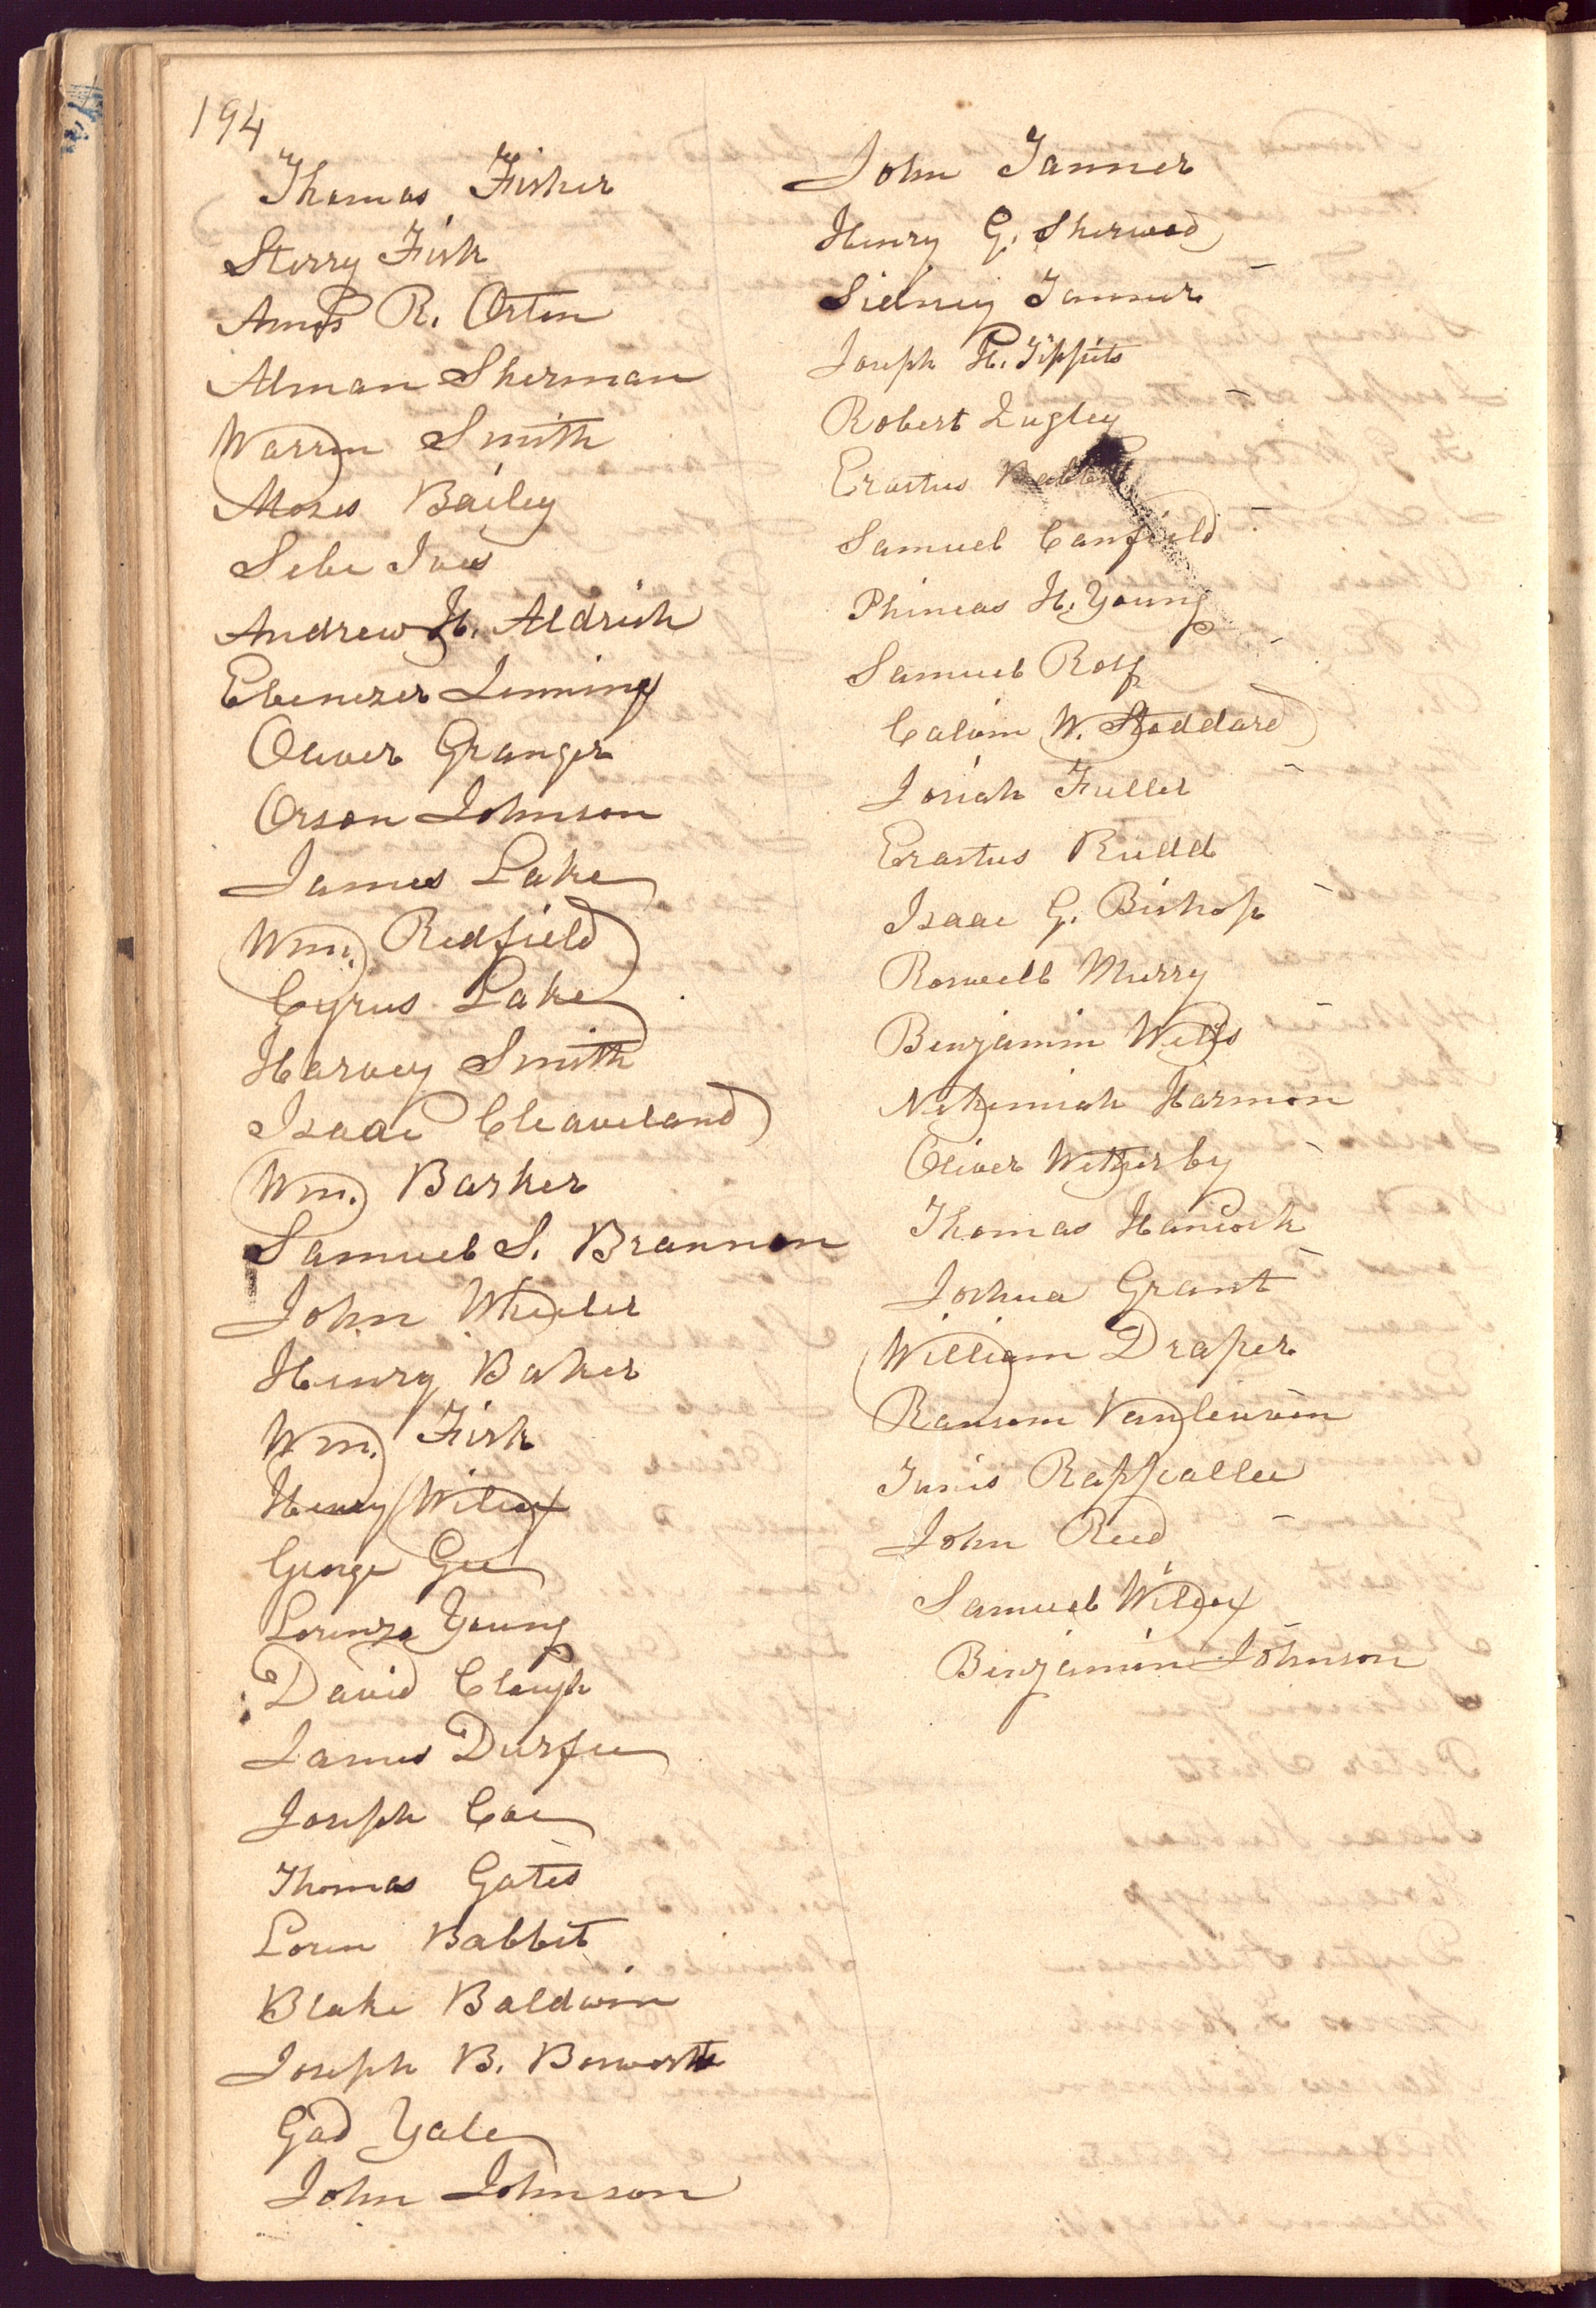 194
Thomas Fisher
Sterry Fisk
Amos R. Orton
Alman Sherman
Warren Smith
Moses Bailey
Sebe Ives
Andrew H. Aldrich
Ebenezer Jennings
Oliver Granger
Orson Johnson
James Lake
Wm. Redfield
Cyrus Lake
Harvey Smith
Isaac Cleaveland
Wm. Barker
Samuel S. Brannon
John Wheeler
Henry Baker
Wm. Fisk
Henry Wilcox
George Gee
Lorenzo Young
David Clough
James Durfee
Joseph Coe
Thomas Gates
Loren Babbit
Blake Baldwin
Joseph B. Bosworth
Gad Yale
John Johnson
John Tanner
Henry G. Sherwood
Sidney Tanner
Joseph H. Tippits
Robert Quigley
Erastus Babbit
Samuel Canfield
Phineas H. Young
Samuel Rolf
Calvin W. Stoddard
Josiah Fuller
Erastus Rudd
Isaac G. Bishop
Roswell Murry
Benjamin Wells
Nehemiah Harmon
Oliver Wetherby
Thomas Hancock
Joshua Grant
William Draper
Ransom Vanleuven
Tunis Rappallee
John Reed
Samuel Wilcox
Benjamin Johnson